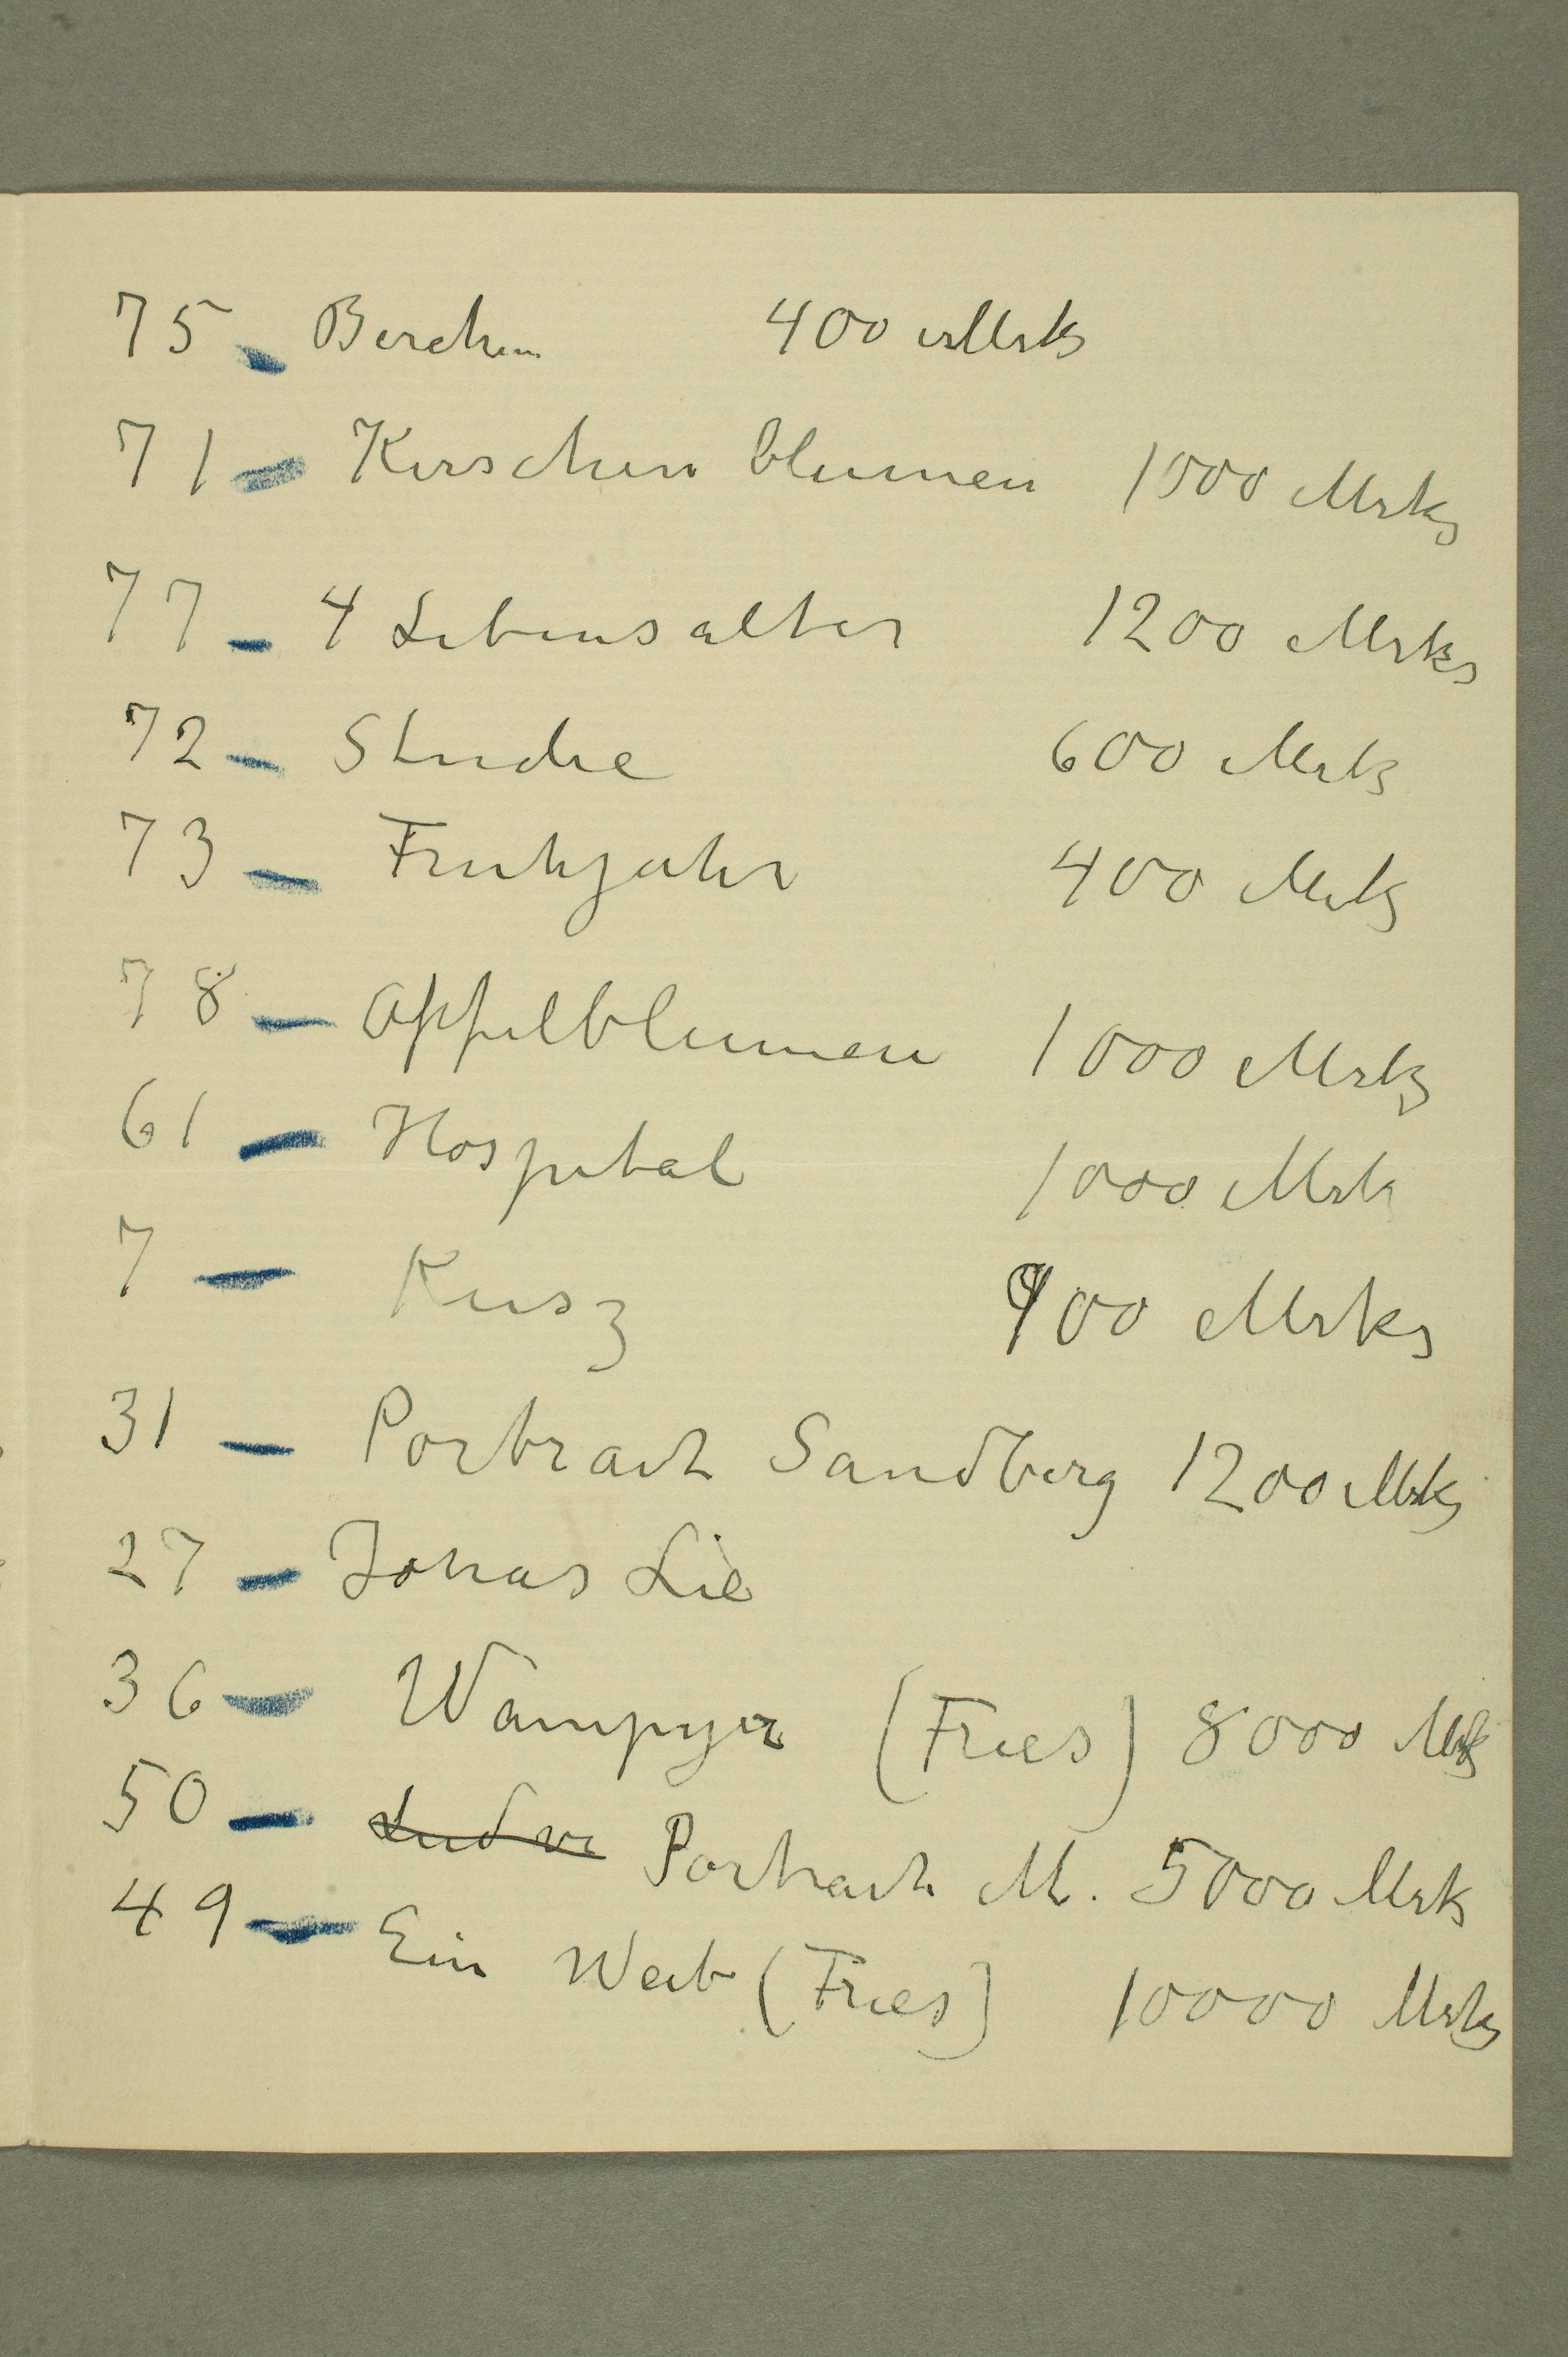 75 – Birchen 400 Mrks
71 – Kirschen blumen 1000 Mrks
77 – 4 Lebensalter 1200 Mrks
72 – Studie 600 Mrk
73 – Fruhjahr 400 Mrk
78 – Apfelblumen 1000 Mrks
61 – Hospital 1000 Mrk
7 – Kusz 900 Mrks
31 – Portrait Sandberg 1200 Mrks
27 – Jonas Lie
36 – Wampyr (Fries) 8000 Mrk
50 – Ludvi Portrait M. 5000 Mrk
49 – Ein Weib (Fries) 10000 Mrks